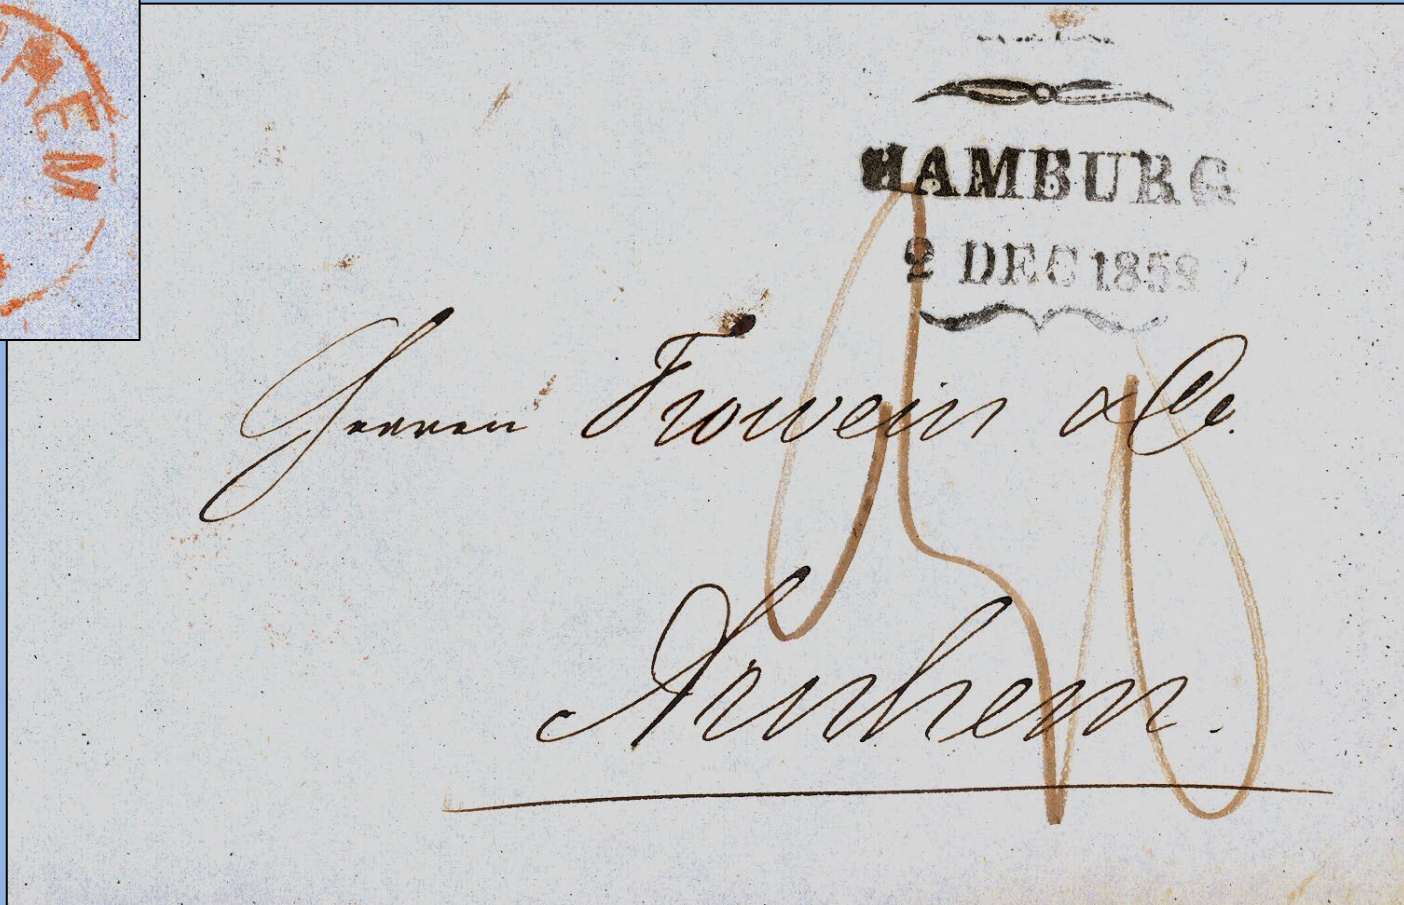 HAMBURG
2 DEC 1859
Herren Frowein & Co.
Arnhem.